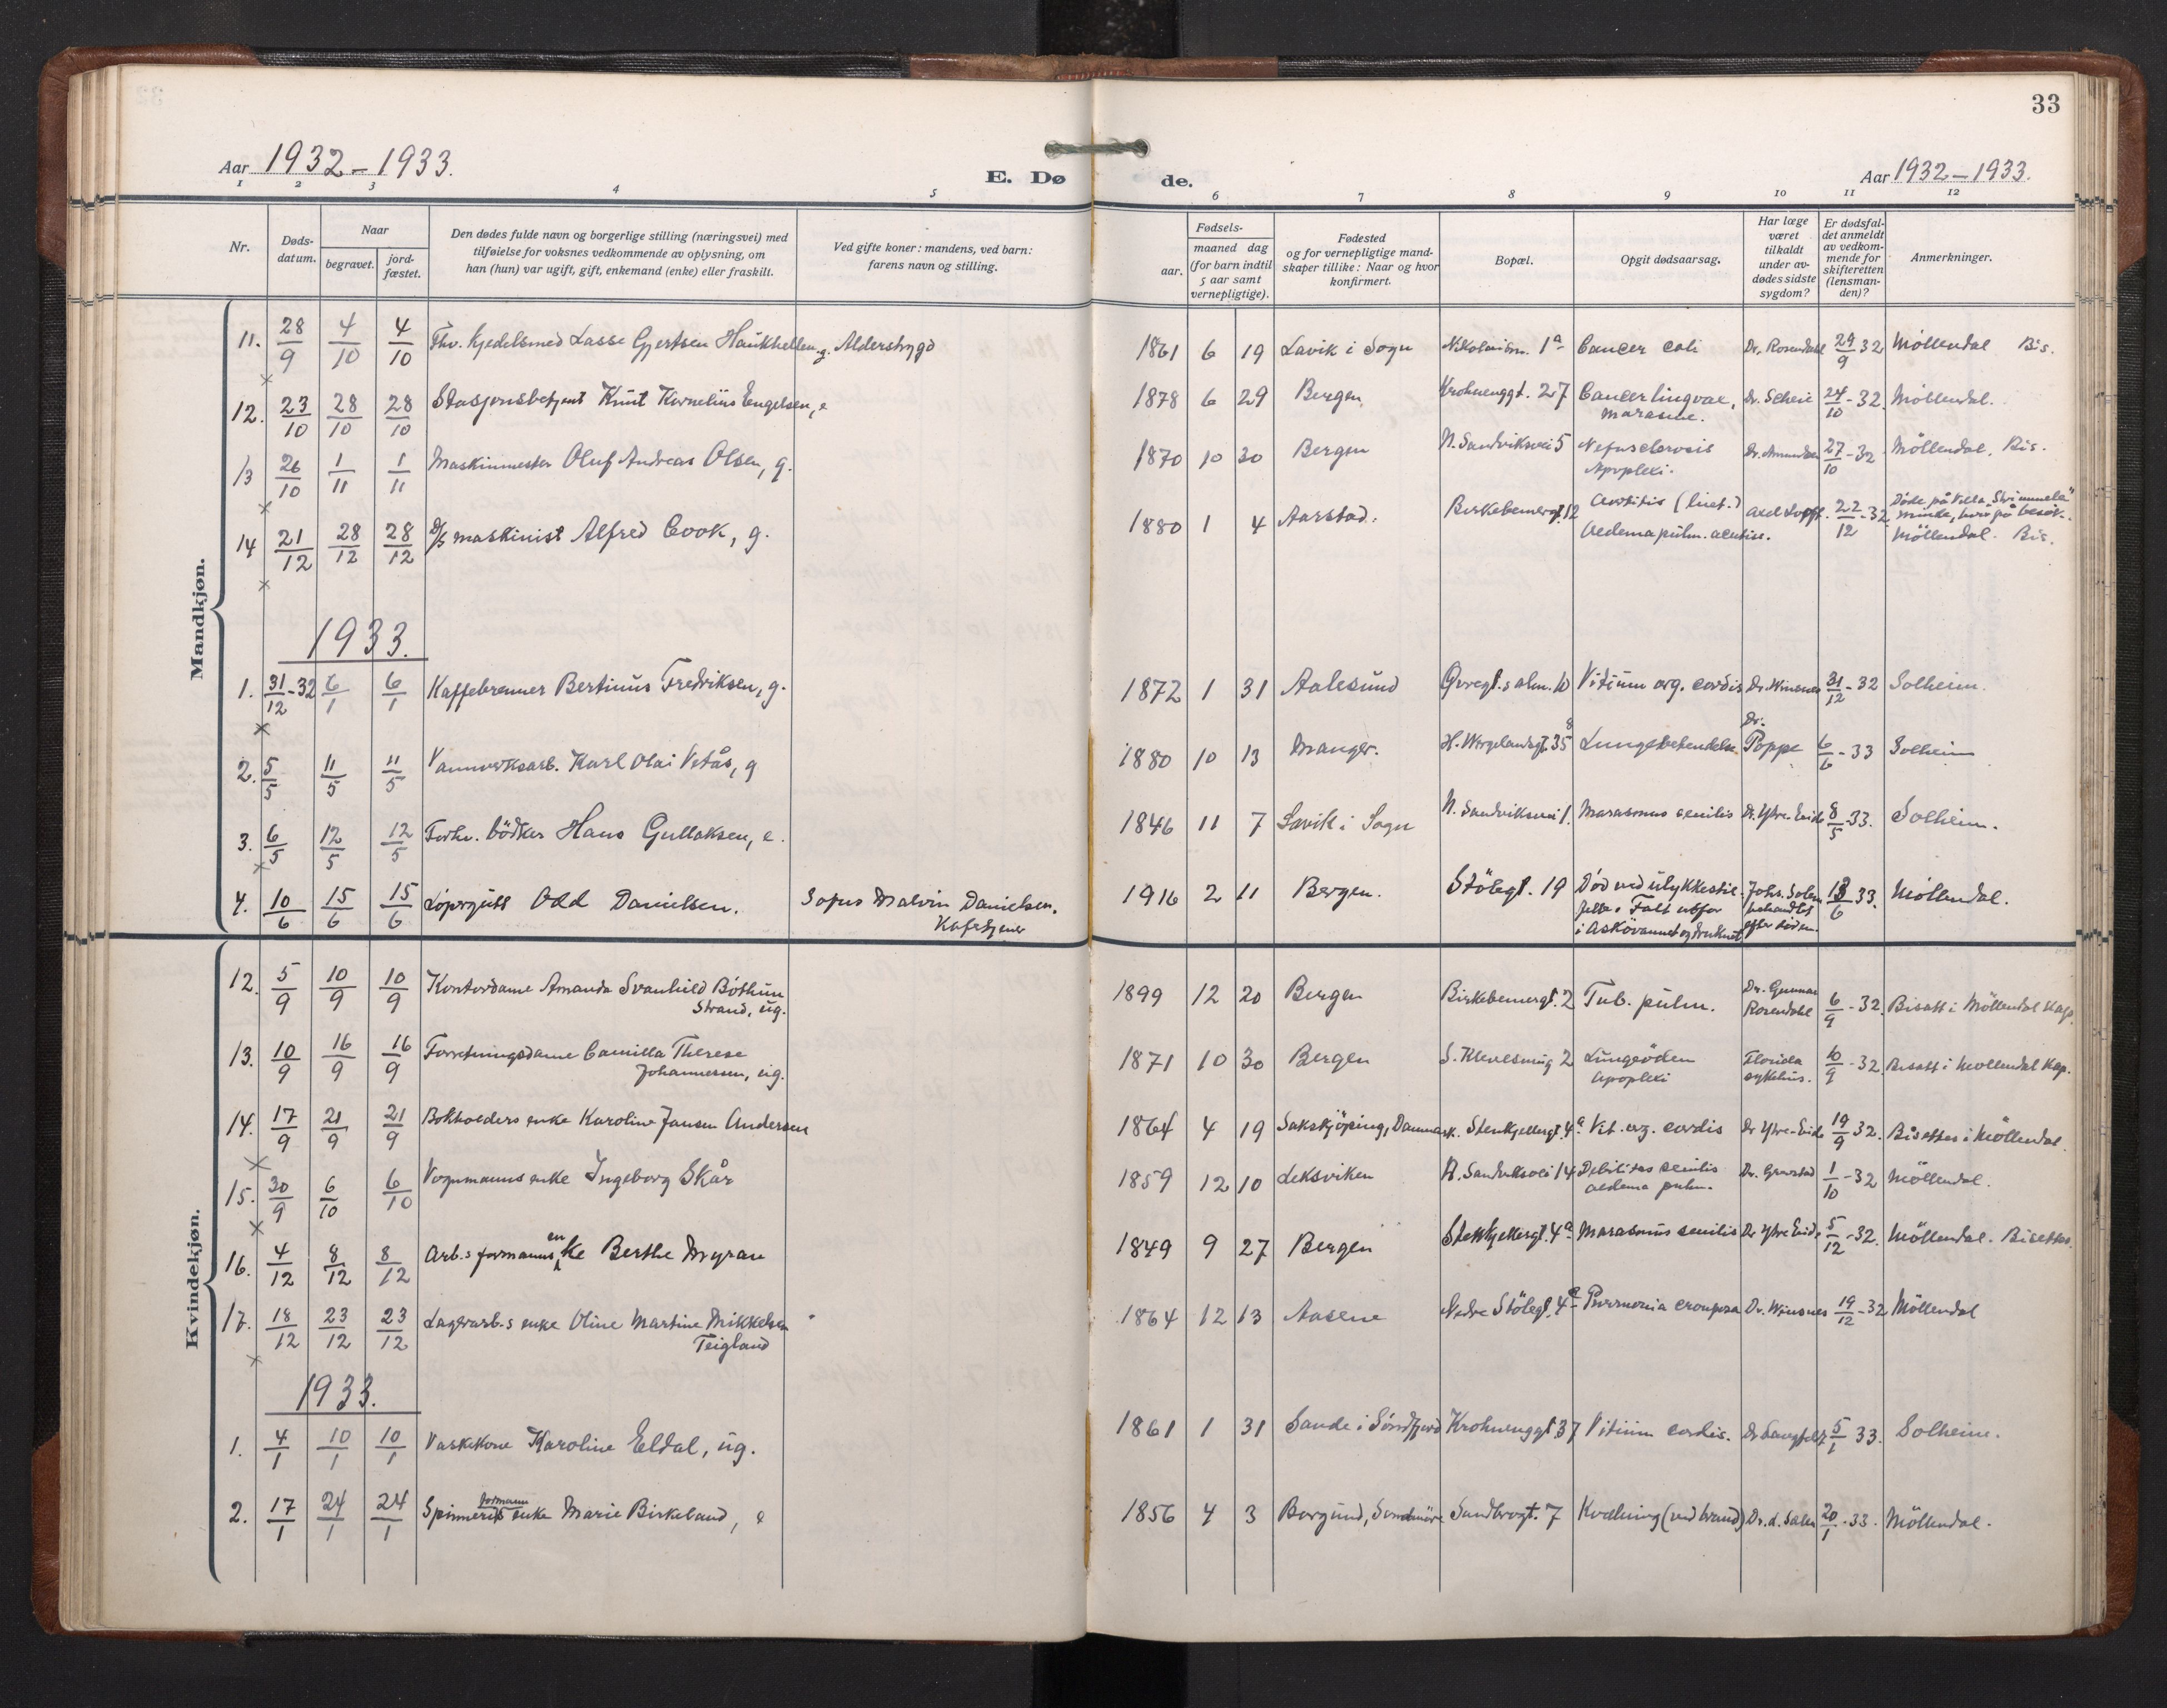 33
Aar 1932-1933.
E. Dø
de.
Aar 1932-1933.
1 2 3 4 5 6 7 8 9 10 11 12
Nr.
Døds-
datum.
Naar
begravet.
jord-
fæstet.
Den dødes fulde navn og borgerlige stilling (næringsvei) med
tilføielse for voksnes vedkommende av oplysning, om
han (hun) var ugift, gift, enkemand (enke) eller fraskilt.
Ved gifte koner: mandens, ved barn:
farens navn og stilling.
Fødsels-
aar.
maaned dag
(for barn indtil
5 aar samt
vernepligtige).
Fødested
og for vernepligtige mand-
skaper tillike: Naar og hvor
konfirmert.
Bopæl.
Opgit dødsaarsag.
Har læge
været
tilkaldt
under av-
dødes sidste
sygdom?
Er dødsfal-
det anmeldt
av vedkom-
mende for
skifteretten
(lensman-
den)?
Anmerkninger.
Mandkjøn.
11. 28/9 4/10 4/10 Fhv. Kjedelsmed Lasse Gjertsen Haukhellen, g. Alderstrygd 1861 6 19 Lavik i Sogn 1a Cancer coli Dr. Rosendahl 29/9 32 Möllendal Bis.
12. 23/10 28/10 28/10 Stasjonsbetjent Knut Kornelius Engelsen, e 1878 6 29 Bergen Krohnenggt. 27 Cancer lingvae, Dr. Scheie 24/10-32. Möllendal.
marasme.
13 26/10 1/11 1/11 Maskinmester Oluf Andreas Olsen, g. 1870 10 30 Bergen N. Sandviksvei 5 Nefrosclerosis Dr. Amundsen 27/10-32 Möllendal. Bis.
Apoplexi.
14 21/12 28/12 28/12 D/S maskinist Alfred Cook, g. 1880 1 4 Aarstad. Birkebeinergt. 12 Aortitis (luet.) 22/12-32 Döde på Villa
minde, var på besök.
Oedema pulm. acutisc. Möllendal. Bis.
1933.
1. 31/12-32 6/1 6/1 Kaffebrenner Bertinus Fredriksen, g. 1872 1 31 Aalesund Øvregt.s alm. 10 Vitium org. cordis Dr. Winsnes 31/12-32 Solheim.
2. 5/5 11/5 11/5 Vannverksarb. Karl Olai Vetås, g 1880 10 13 Manger. H. Wergelandsgt. 35 Lungebetendelse Dr. Poppe 6/6-33 Solheim
3. 6/5 12/5 12/5 Forhv. bödker Hans Gullaksen, e. 1846 11 7 Lavik i Sogn N. Sandviksvei 1. Marasmus senilis Dr. Ytre-Eide 8/5-33. Solheim.
4. 10/6 15/6 15/6 Löpegutt Odd Danielsen. Sofus Malvin Danielsen, 1916 2 11 Bergen. Stölegt. 19 Död ved ulykkestil- 13/6 33. Möllendal.
Kafetjener
felle. Falt utfor
i Askövannet og druknet efter döden.
Kvindekjøn.
12. 5/9 10/9 10/9 Kontordame Amanda Svanhild Böthun 1899 12 20 Bergen Birkebeinergt. 2 Tub. pulm. Dr. Gunnar Rosendahl 6/9-32. Bisatt i Möllendal Kap.
Strand, ug.
13. 10/9 16/9 16/9 Forretningsdame Camilla Therese 1871 10 30 Bergen S. Klevesmug 2 Lungeödem Florida 10/9-32. Bisatt i Möllendal Kap.
Johannessen, ug. apoplexi sykehus.
14. 17/9 21/9 21/9 Bokholders enke Karoline Jansen Andersen 1864 4 19 Sakskjöping, Danmark. Stenkjellergt. 4a Vit. org. cordis Dr Ytre-Eide 19/9 32. Bisettes i Möllendal.
15. 30/9 6/10 6/10 Vognmanns enke Ingeborg Skår 1859 12 10 Leksviken N. Sandviksvei 14 Debilitas senilis Dr. Grevstad 1/10-32 Möllendal.
oedema pulm.
16. 4/12 8/12 8/12 Arb.s formanns enke Berthe Myran 1849 9 27 Bergen Stenkjellergt. 4a Marasmus senilis Dr Ytre Eide 5/12-32. Möllendal. Bisettes.
17. 18/12 23/12 23/12 Lagerarb.s enke Oline Martine Mikkelsen 1864 12 13 Aasene Nedre Stölegt. 4a Pnevmonia crouposa Dr. Winsnes 19/12-32 Möllendal
Teigland
1933.
1. 4/1 10/1 10/1 Vaskekone Karoline Eldal, ug. 1861 1 31 Sande i Söndfjord Krohnenggt. 37 Vitium cordis. 5/1 33. Solheim.
2. 17/1 24/1 24/1 Spinneri formann enke Marie Birkeland, e 1856 4 3 Borgund, Sondmöre Sandbrogt. 7 Kvelning (ved brand) 20/1-33. Möllendal.